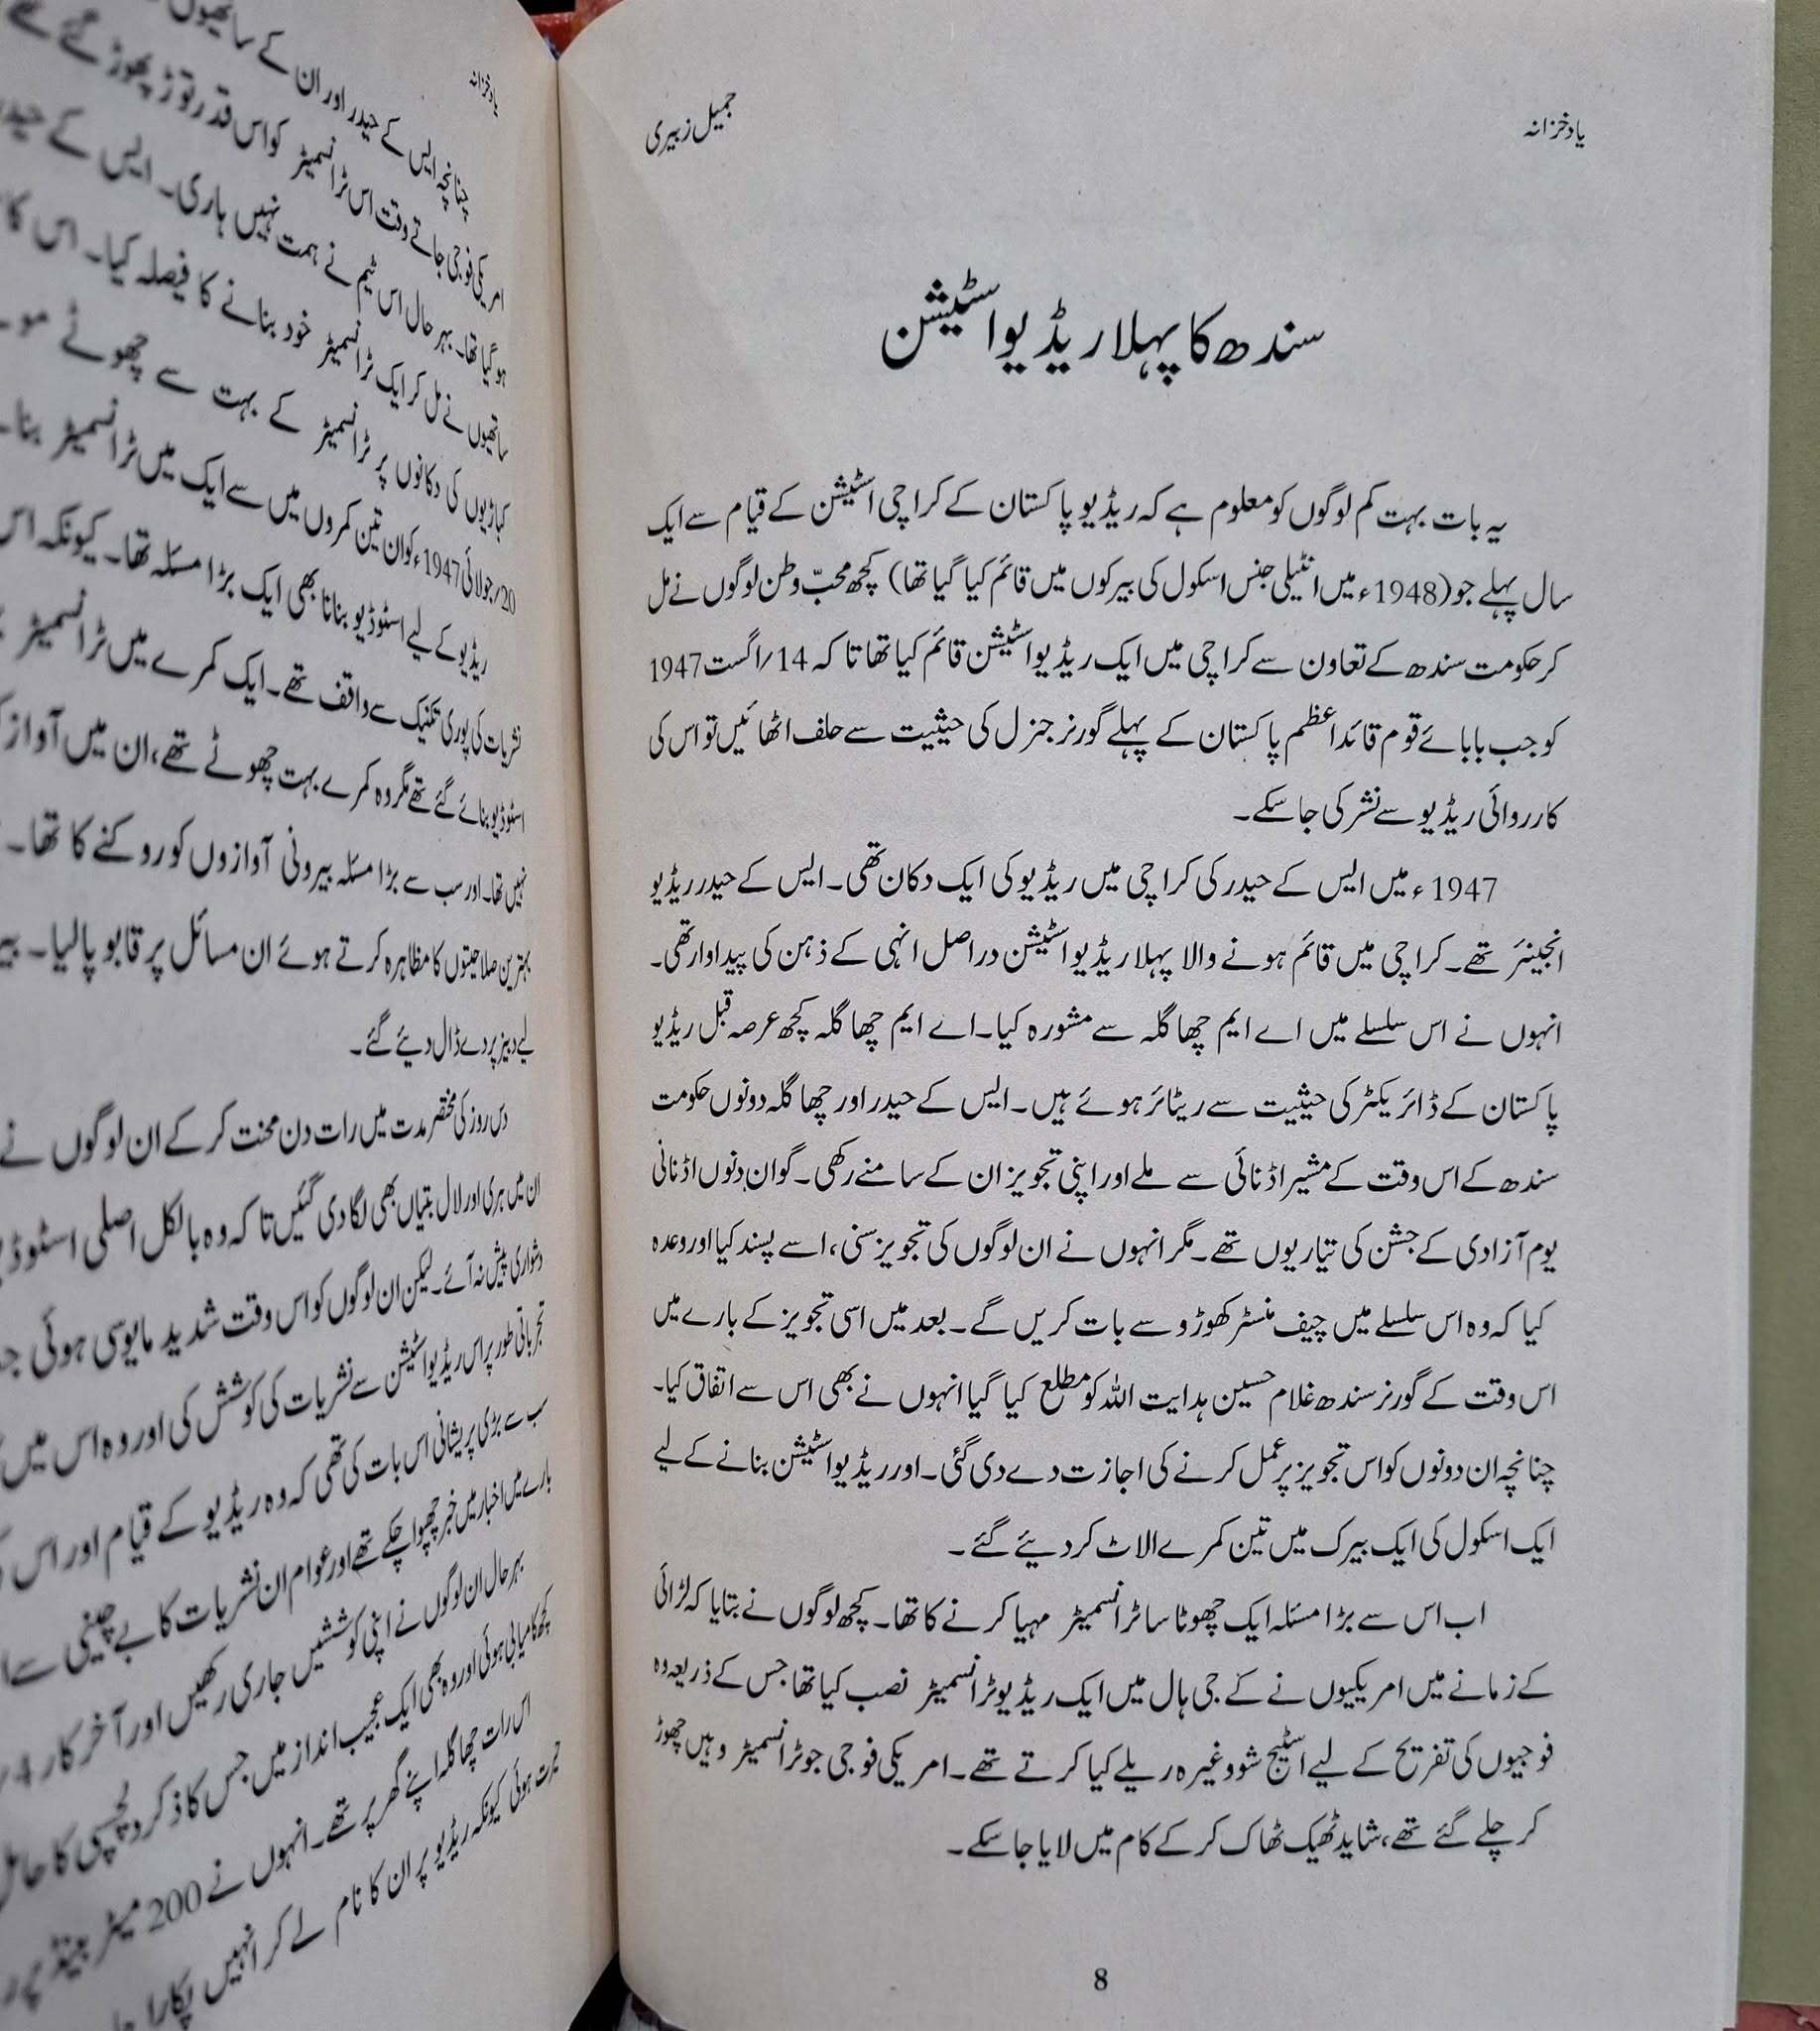 یادخزانہ
جمیل زبیری
سندھ کا پہلا ریڈیو اسٹیشن
یہ بات بہت کم لوگوں کو معلوم ہے کہ ریڈیو پاکستان کے کراچی اسٹیشن کے قیام سے ایک
سال پہلے جو (1948ء میں انٹیلی جنس اسکول کی بیرکوں میں قائم کیا گیا تھا) کچھ محبّ وطن لوگوں نے مل
کر حکومت سندھ کے تعاون سے کراچی میں ایک ریڈیو اسٹیشن قائم کیا تھا تاکہ 14/اگست 1947
کو جب بابائے قوم قائداعظم پاکستان کے پہلے گورنر جنرل کی حیثیت سے حلف اٹھائیں تو اس کی
کارروائی ریڈیو سے نشر کی جاسکے۔
1947ء میں ایس کے حیدر کی کراچی میں ریڈیو کی ایک دکان تھی۔ ایس کے حیدر ریڈیو
انجینئر تھے۔ کراچی میں قائم ہونے والا پہلا ریڈیو اسٹیشن دراصل انہی کے ذہن کی پیداوار تھی۔
انہوں نے اس سلسلے میں اے ایم چھاگلہ سے مشورہ کیا۔ اے ایم چھاگلہ کچھ عرصہ قبل ریڈیو
پاکستان کے ڈائریکٹر کی حیثیت سے ریٹائر ہوئے ہیں۔ ایس کے حیدر اور چھاگلہ دونوں حکومت
سندھ کے اس وقت کے مشیر اڈنائی سے ملے اور اپنی تجویز ان کے سامنے رکھی۔ گو ان دنوں اڈنانی
یوم آزادی کے جشن کی تیاریوں تھے۔ مگر انہوں نے ان لوگوں کی تجویز سنی، اسے پسند کیا اور وعدہ
کیا کہ وہ اس سلسلے میں چیف منسٹر کھوڑو سے بات کریں گے۔ بعد میں اسی تجویز کے بارے میں
اس وقت کے گورنر سندھ غلام حسین ہدایت اللہ کو مطلع کیا گیا انہوں نے بھی اس سے اتفاق کیا۔
چنانچہ ان دونوں کو اس تجویز پر عمل کرنے کی اجازت دے دی گئی۔ اور ریڈیو اسٹیشن بنانے کے لیے
ایک اسکول کی ایک بیرک میں تین کمرے الاٹ کر دیئے گئے۔
اب اس سے بڑا مسئلہ ایک چھوٹا سا ٹرانسمیٹر مہیا کرنے کا تھا۔ کچھ لوگوں نے بتایا کہ لڑائی
کے زمانے میں امریکیوں نے کے جی ہال میں ایک ریڈیو ٹرانسمیٹر نصب کیا تھا جس کے ذریعہ وہ
فوجیوں کی تفریح کے لیے اسٹیج شو وغیرہ ریلے کیا کرتے تھے۔ امریکی فوجی جو ٹرانسمیٹر وہیں چھوڑ
کر چلے گئے تھے، شاید ٹھیک ٹھاک کر کے کام میں لایا جاسکے۔
8
یادخزانہ
چنانچہ ایس کے حیدر اور ان کے ساتھیوں
امریکی فوجی جاتے وقت اس ٹرانسمیٹر کو اس قدر توڑ پھوڑ گئے تھے
ہو گیا تھا۔ بہر حال اس ٹیم نے ہمت نہیں ہاری۔ ایس کے حیدر
ساتھیوں نے مل کر ایک ٹرانسمیٹر خود بنانے کا فیصلہ کیا۔ اس کا
کباڑیوں کی دکانوں پر ٹرانسمیٹر کے بہت سے چھوٹے مو
20/جولائی 1947ء کو ان تین کمروں میں سے ایک میں ٹرانسمیٹر بنا
ریڈیو کے لیے اسٹوڈیو بنانا بھی ایک بڑا مسئلہ تھا۔ کیونکہ اس
نشریات کی پوری تکنیک سے واقف تھے۔ ایک کمرے میں ٹرانسمیٹر
اسٹوڈیو بنائے گئے تھے مگر وہ کمرے بہت چھوٹے تھے، ان میں آواز
نہیں تھا۔ اور سب سے بڑا مسئلہ بیرونی آوازوں کو روکنے کا تھا۔
بہترین صلاحیتوں کا مظاہرہ کرتے ہوئے ان مسائل پر قابو پالیا۔
لیے دبیز پردے ڈال دیئے گئے۔
دس روز کی مختصر مدت میں رات دن محنت کر کے ان لوگوں نے
ان میں ہری اور لال بتیاں بھی لگا دی گئیں تاکہ وہ بالکل اصلی اسٹوڈ
دشواری پیش نہ آئے۔ لیکن ان لوگوں کو اس وقت شدید مایوسی ہوئی
تجرباتی طور پر اس ریڈیو اسٹیشن سے نشریات کی کوشش کی اور وہ اس میں
سب سے بڑی پریشانی اس بات کی تھی کہ وہ ریڈیو کے قیام اور اس
بارے میں اخبار میں خبر چھپوا چکے تھے اور عوام ان نشریات کا بے چینی سے
بہر حال ان لوگوں نے اپنی کوششیں جاری رکھیں اور آخر کار 4
کچھ کامیابی ہوئی اور وہ بھی ایک عجیب انداز میں جس کا ذکر دلچسپی کا حامل
اس رات چھاگلہ اپنے گھر پر تھے۔ انہوں نے 200 میٹر بینڈ پر
حیرت ہوئی کیونکہ ریڈیو پر ان کا نام لے کر انہیں پکارا